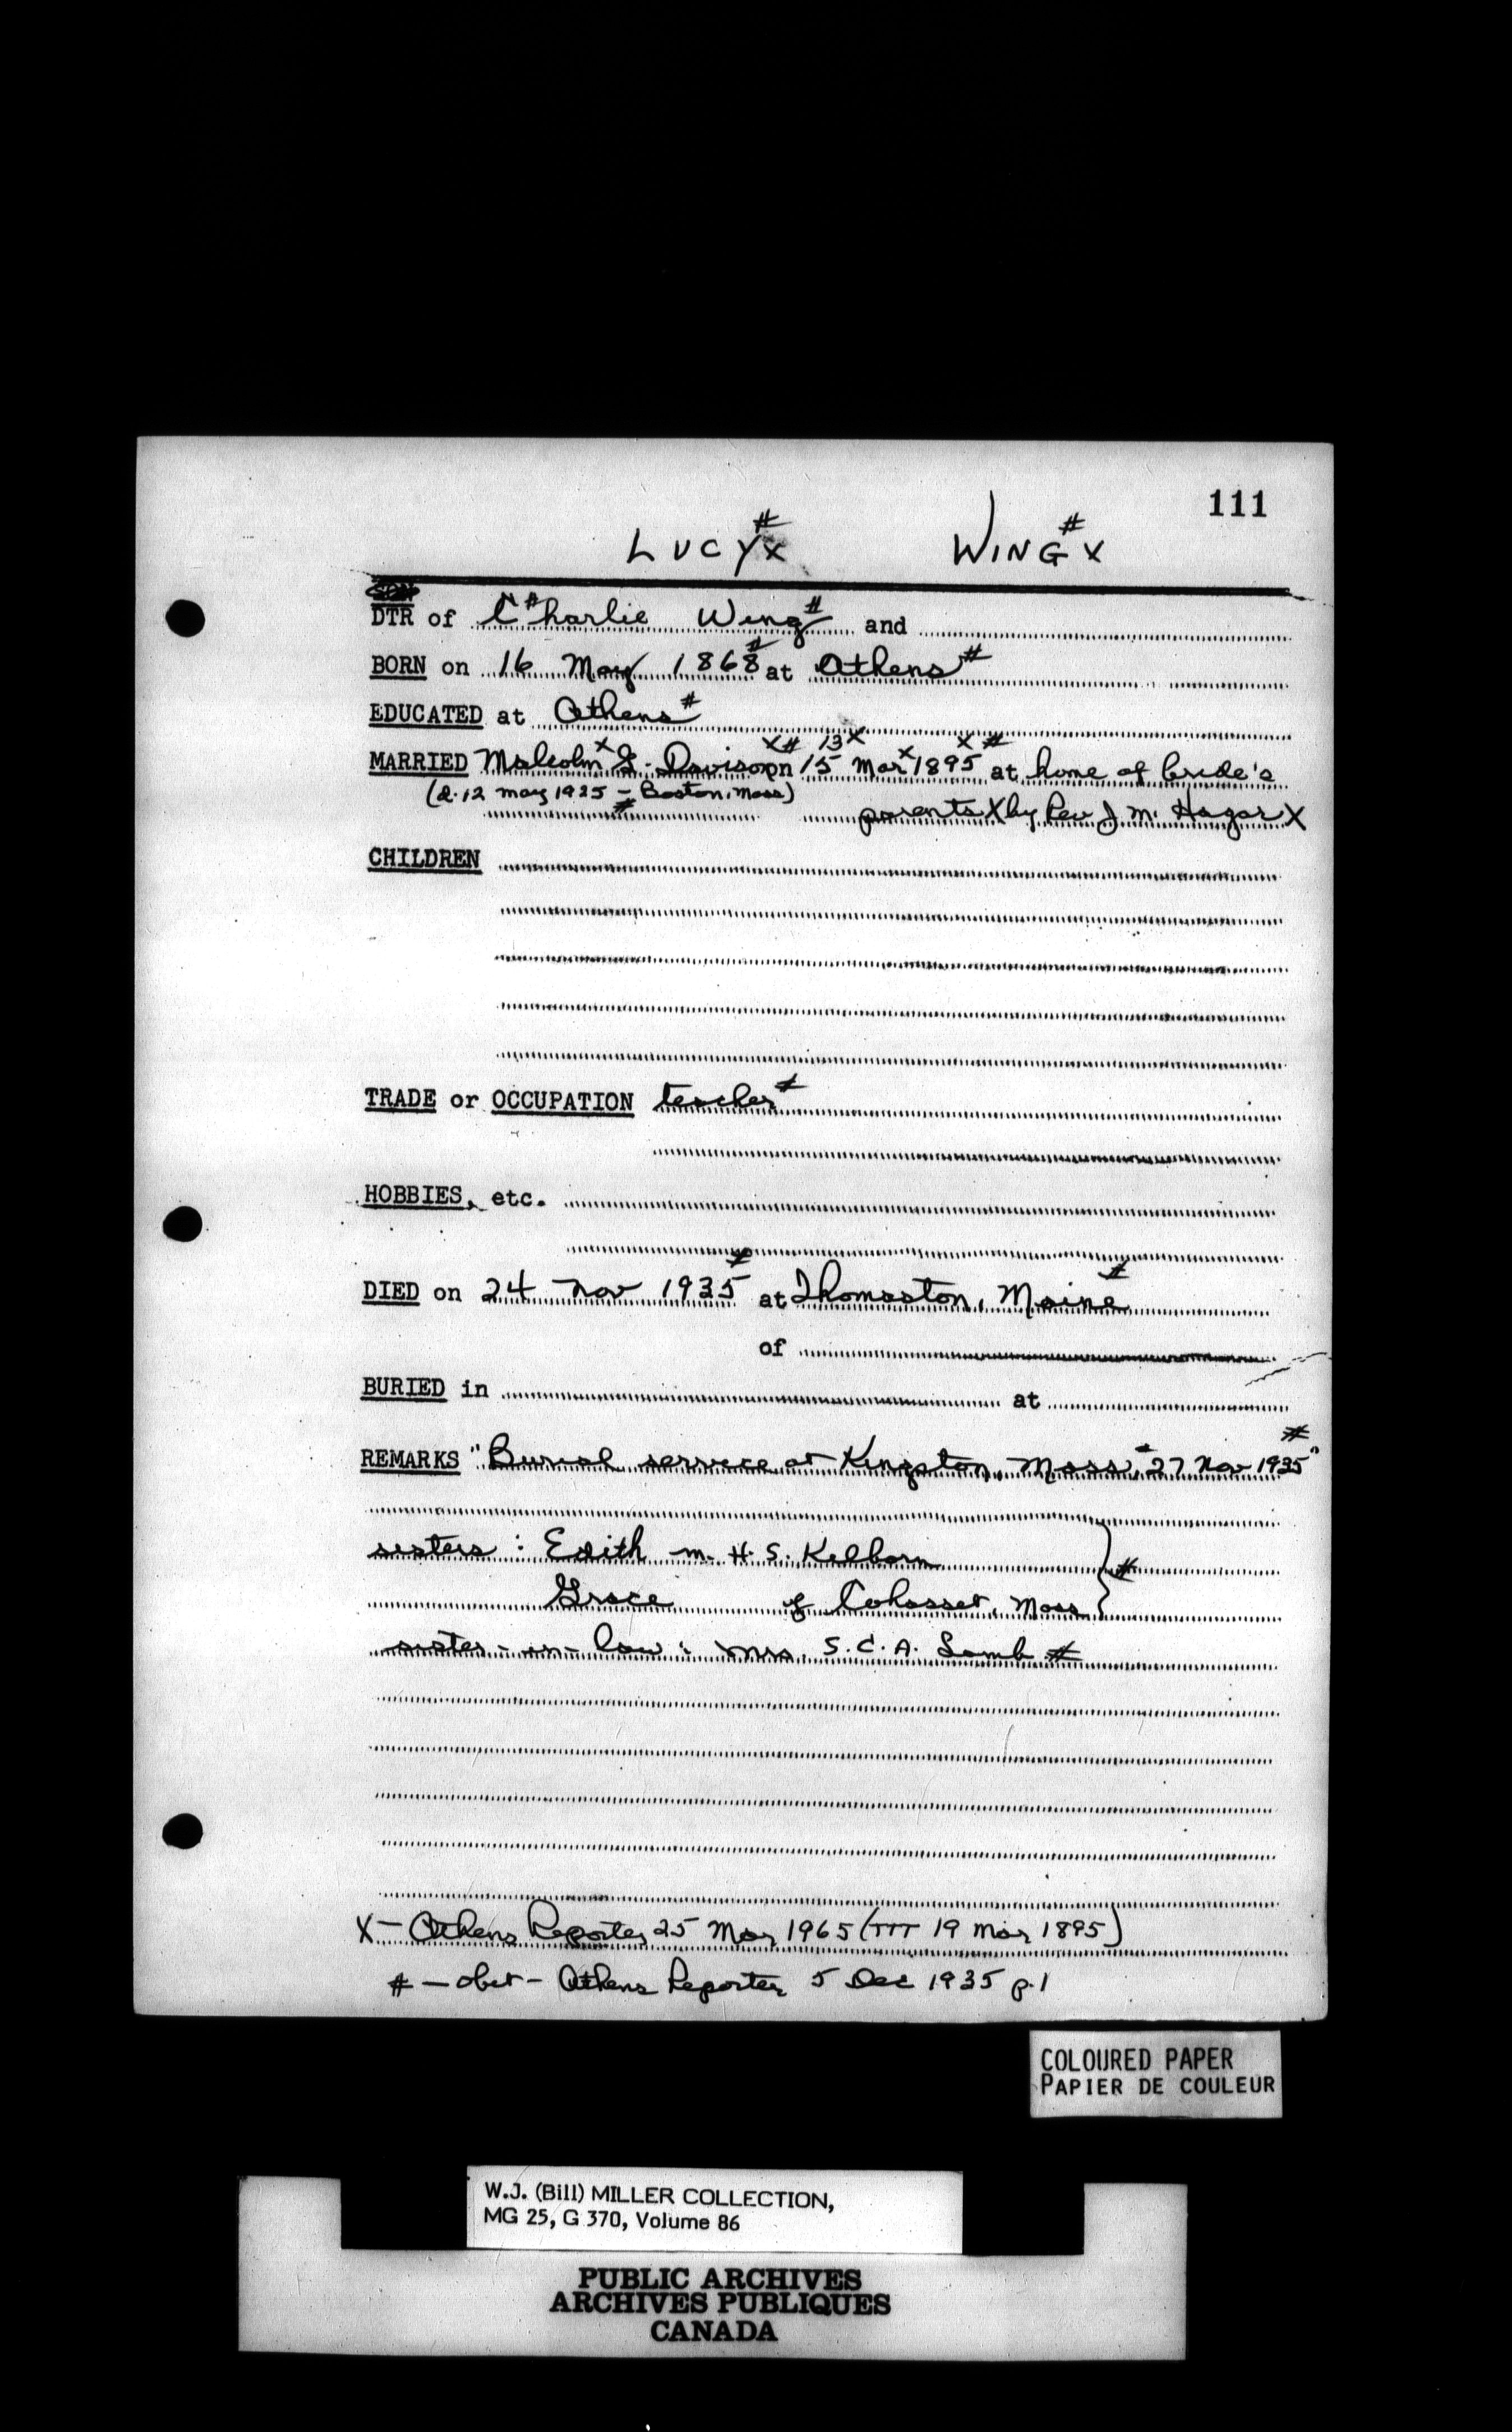 111
LUCY#x WING#x
SON
DTR of C#harlie Wing# and
BORN on 16 May 1868# at Athens#
EDUCATED at Athens#
x# 13x x #
MARRIED Malcolmx G. Davison on 15 Marx 1895 at home of bride's
(d. 12 may 1925 – Boston, Mass)
# parents X by Rev J. M. Hagar X
CHILDREN
TRADE or OCCUPATION teacher#
HOBBIES, etc.
DIED on 24 Nov 1935# at Thomaston, Maine#
of
BURIED in at
REMARKS "Burial service at Kingston, Mass, 27 Nov 1935"#
sisters : Edith m. H. S. Kilborn } #
Grace of Cohasset, Mass }
sister-in-law : Mrs. S. C. A. Lamb #
X – Athens Reporter 25 Mar 1965 (TTT 19 Mar 1895)
# – obit – Athens Reporter 5 Dec 1935 p.1
COLOURED PAPER
PAPIER DE COULEUR
W.J. (Bill) MILLER COLLECTION,
MG 25, G 370, Volume 86
PUBLIC ARCHIVES
ARCHIVES PUBLIQUES
CANADA